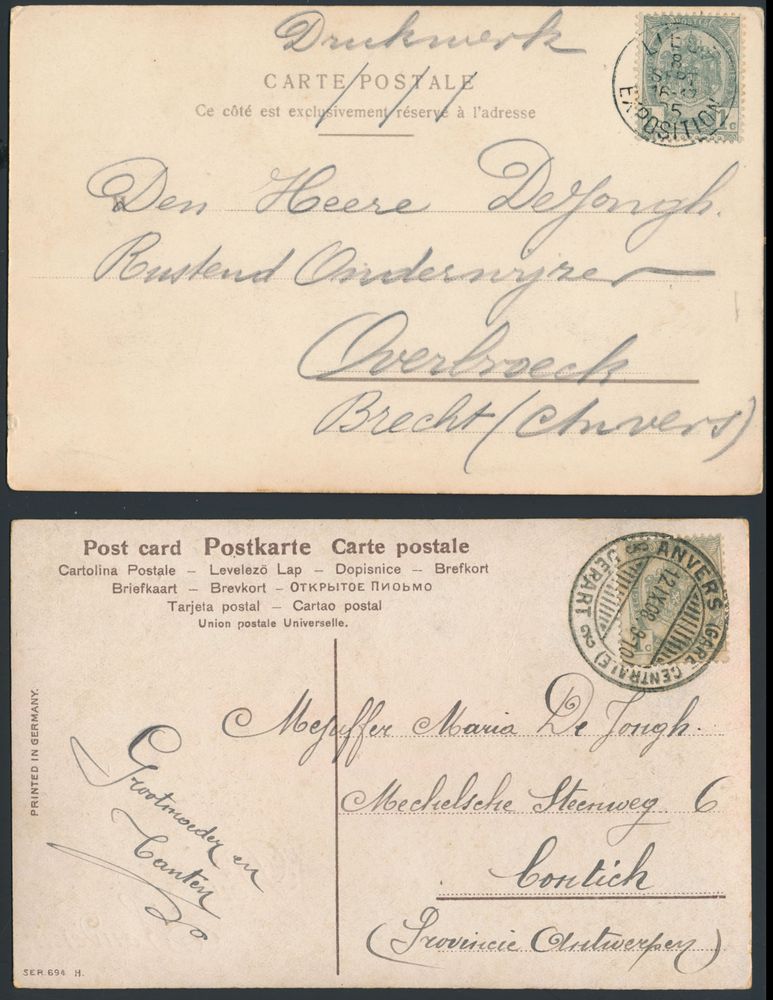 Drukwerk
CARTE POSTALE
Ce côté est exclusivement réservé à l'adresse
8
SEPT
EXPOSITION
1 c
Den Heere DeJongh.
Rustend Onderwijzer
Overbroeck
Brecht (Anvers)
Post card Postkarte Carte postale
Cartolina Postale – Levelező Lap – Dopisnice – Brefkort
Briefkaart – Brevkort – ОТКРЫТОЕ ПИОЬМО
Tarjeta postal – Cartao postal
Union postale Universelle.
ANVERS (GARE CENTRALE)
DEPART
12 IX 08
PRINTED IN GERMANY.
Mejuffer Maria De Jongh.
Mechelsche Steenweg 6
Contich
(Provincie Antwerpen)
Grootmoeder en
Tanten
SER. 694 H.